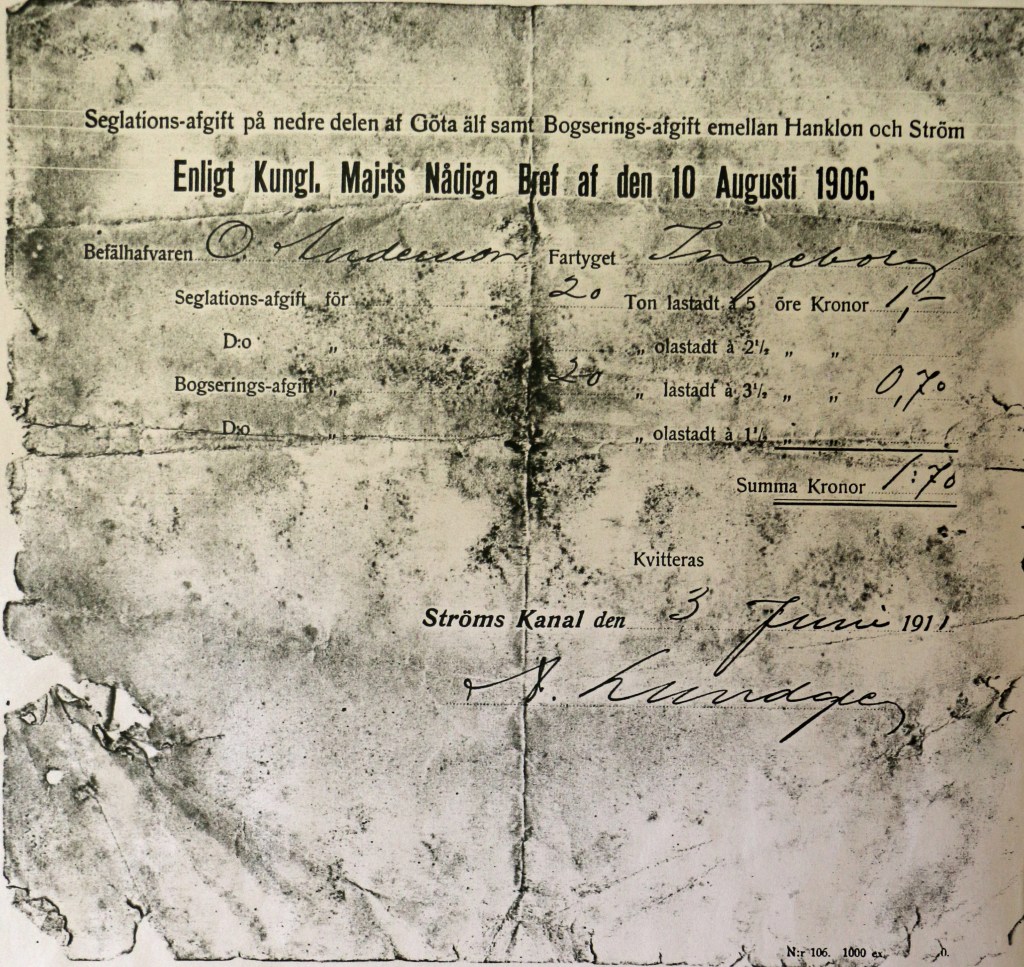 Seglations-afgift på nedre delen af Göta älf samt Bogserings-afgift emellan Hanklon och Ström
Enligt Kungl. Maj:ts Nådiga Bref af den 10 Augusti 1906.
Befälhafvaren O. Anderson Fartyget Ingeborg
Seglations-afgift för 20 Ton lastadt à 5 öre Kronor 1,—
D:o „ „ olastadt à 2½ „ „
Bogserings-afgift „ 20 „ lastadt à 3½ „ „ 0,70
D:o „ „ olastadt à 1½ „ „
Summa Kronor 1:70
Kvitteras
Ströms Kanal den 3 Juni 1911
A. Lundgren
N:r 106. 1000 ex.